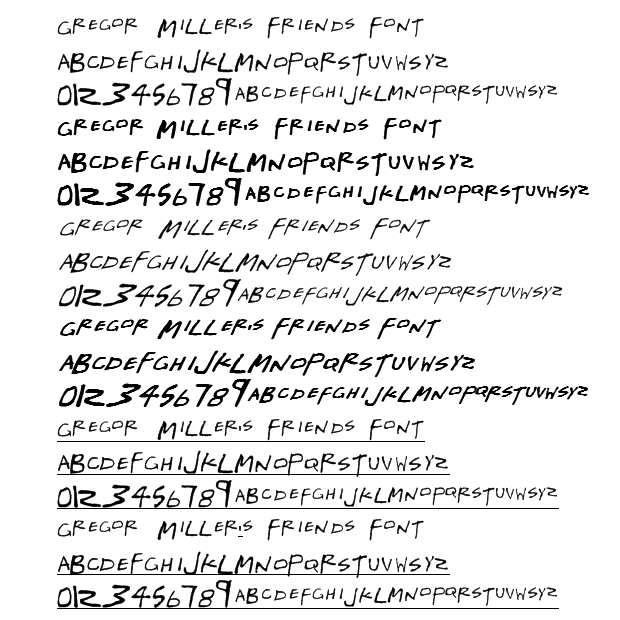 GREGOR MILLER'S FRIENDS FONT
ABCDEFGHIJKLMNOPQRSTUVWSYZ
0123456789ABCDEFGHIJKLMNOPQRSTUVWSYZ
GREGOR MILLER'S FRIENDS FONT
ABCDEFGHIJKLMNOPQRSTUVWSYZ
0123456789ABCDEFGHIJKLMNOPQRSTUVWSYZ
GREGOR MILLER'S FRIENDS FONT
ABCDEFGHIJKLMNOPQRSTUVWSYZ
0123456789ABCDEFGHIJKLMNOPQRSTUVWSYZ
GREGOR MILLER'S FRIENDS FONT
ABCDEFGHIJKLMNOPQRSTUVWSYZ
0123456789ABCDEFGHIJKLMNOPQRSTUVWSYZ
GREGOR MILLER'S FRIENDS FONT
ABCDEFGHIJKLMNOPQRSTUVWSYZ
0123456789ABCDEFGHIJKLMNOPQRSTUVWSYZ
GREGOR MILLER'S FRIENDS FONT
ABCDEFGHIJKLMNOPQRSTUVWSYZ
0123456789ABCDEFGHIJKLMNOPQRSTUVWSYZ